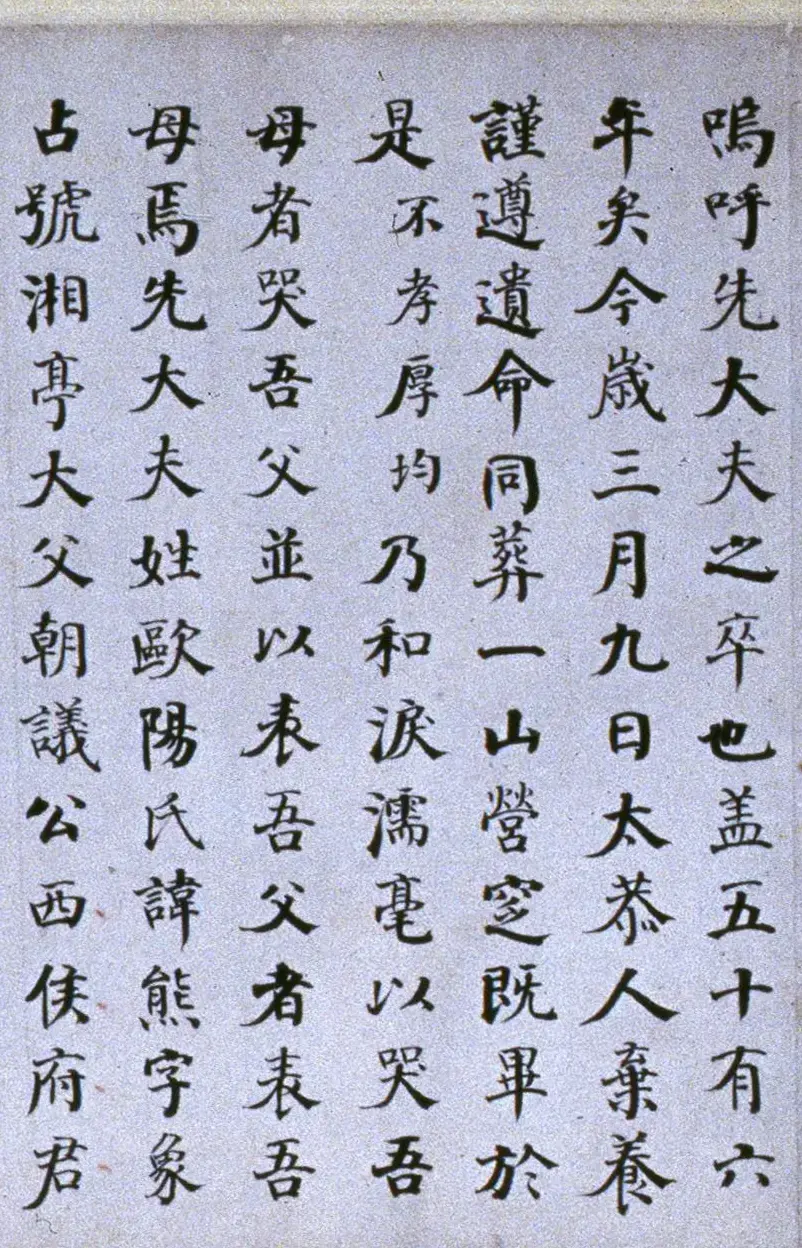 嗚呼先大夫之卒也盖五十有六
年矣今歳三月九日太恭人棄養
謹遵遺命同葬一山營窆既畢於
是不孝厚均乃和淚濡毫以哭吾
母者哭吾父並以表吾父者表吾
母焉先大夫姓歐陽氏諱熊字象
占號湘亭大父朝議公西侯府君